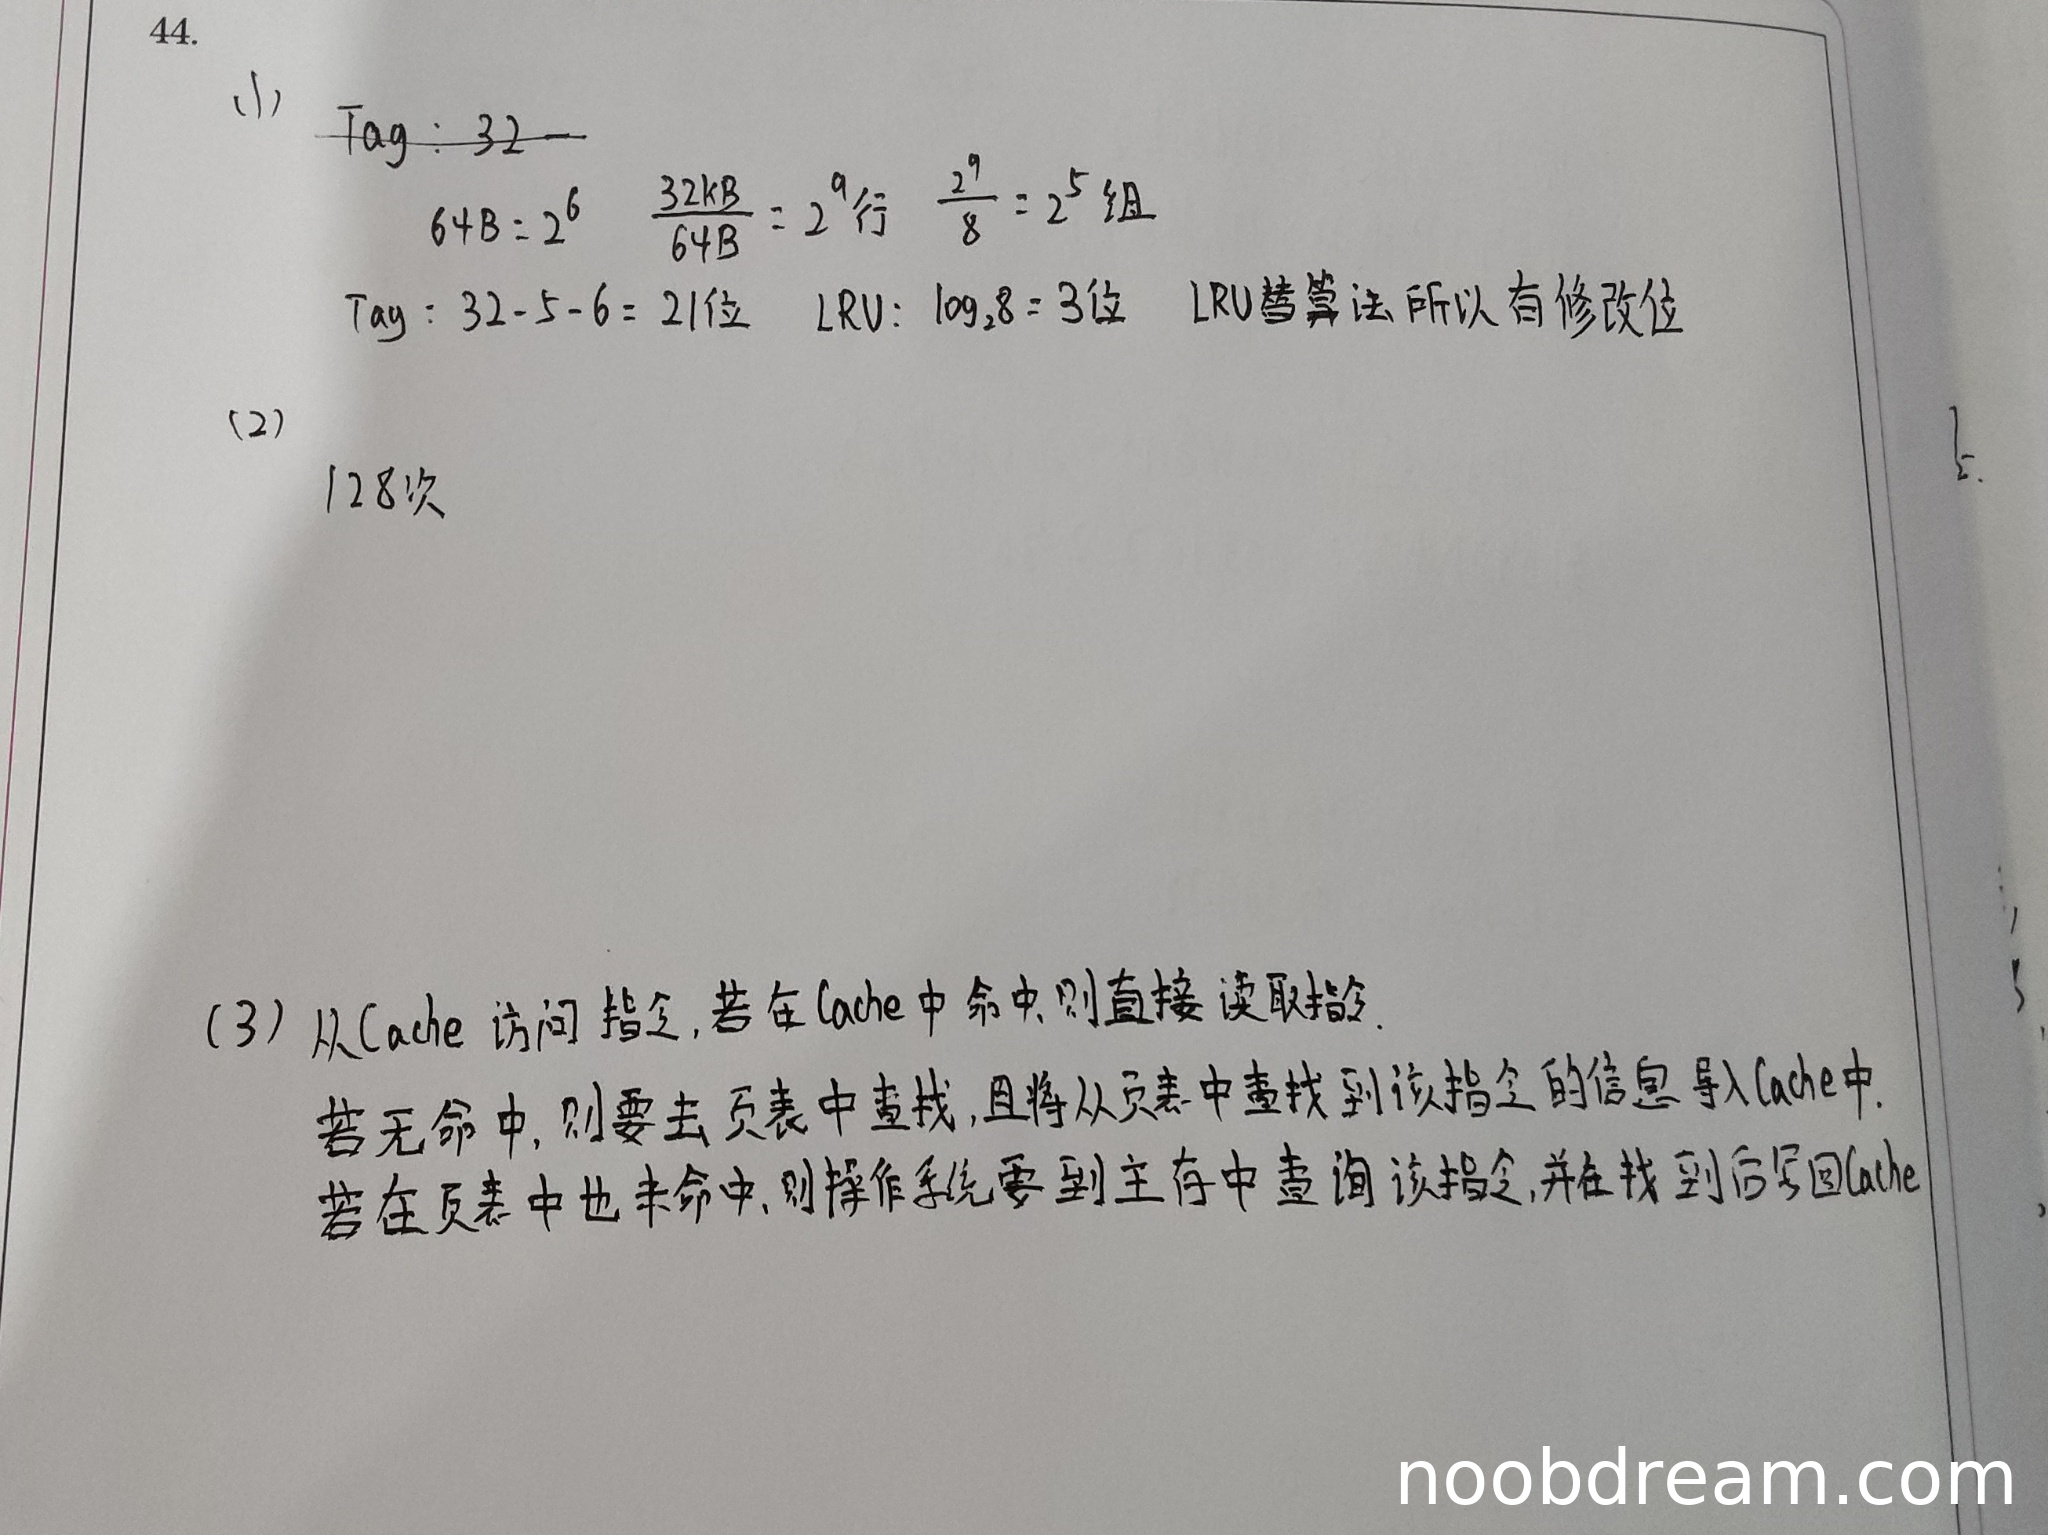 44.
(1)
Tag: 32 -
64B = 2^6 32KB/64B = 2^9行 2^9/8 = 2^5组
Tag: 32-5-6=21位 LRU: log₂8=3位 LRU替算法所以有修改位
(2)
128次
(3) 从Cache访问指令,若在Cache中命中,则直接读取指令.
若无命中,则要去页表中查找,且将从页表中查找到该指令的信息导入Cache中.
若在页表中也未命中,则操作系统要到主存中查询该指令,并在找到后写回Cache
noobdream.com